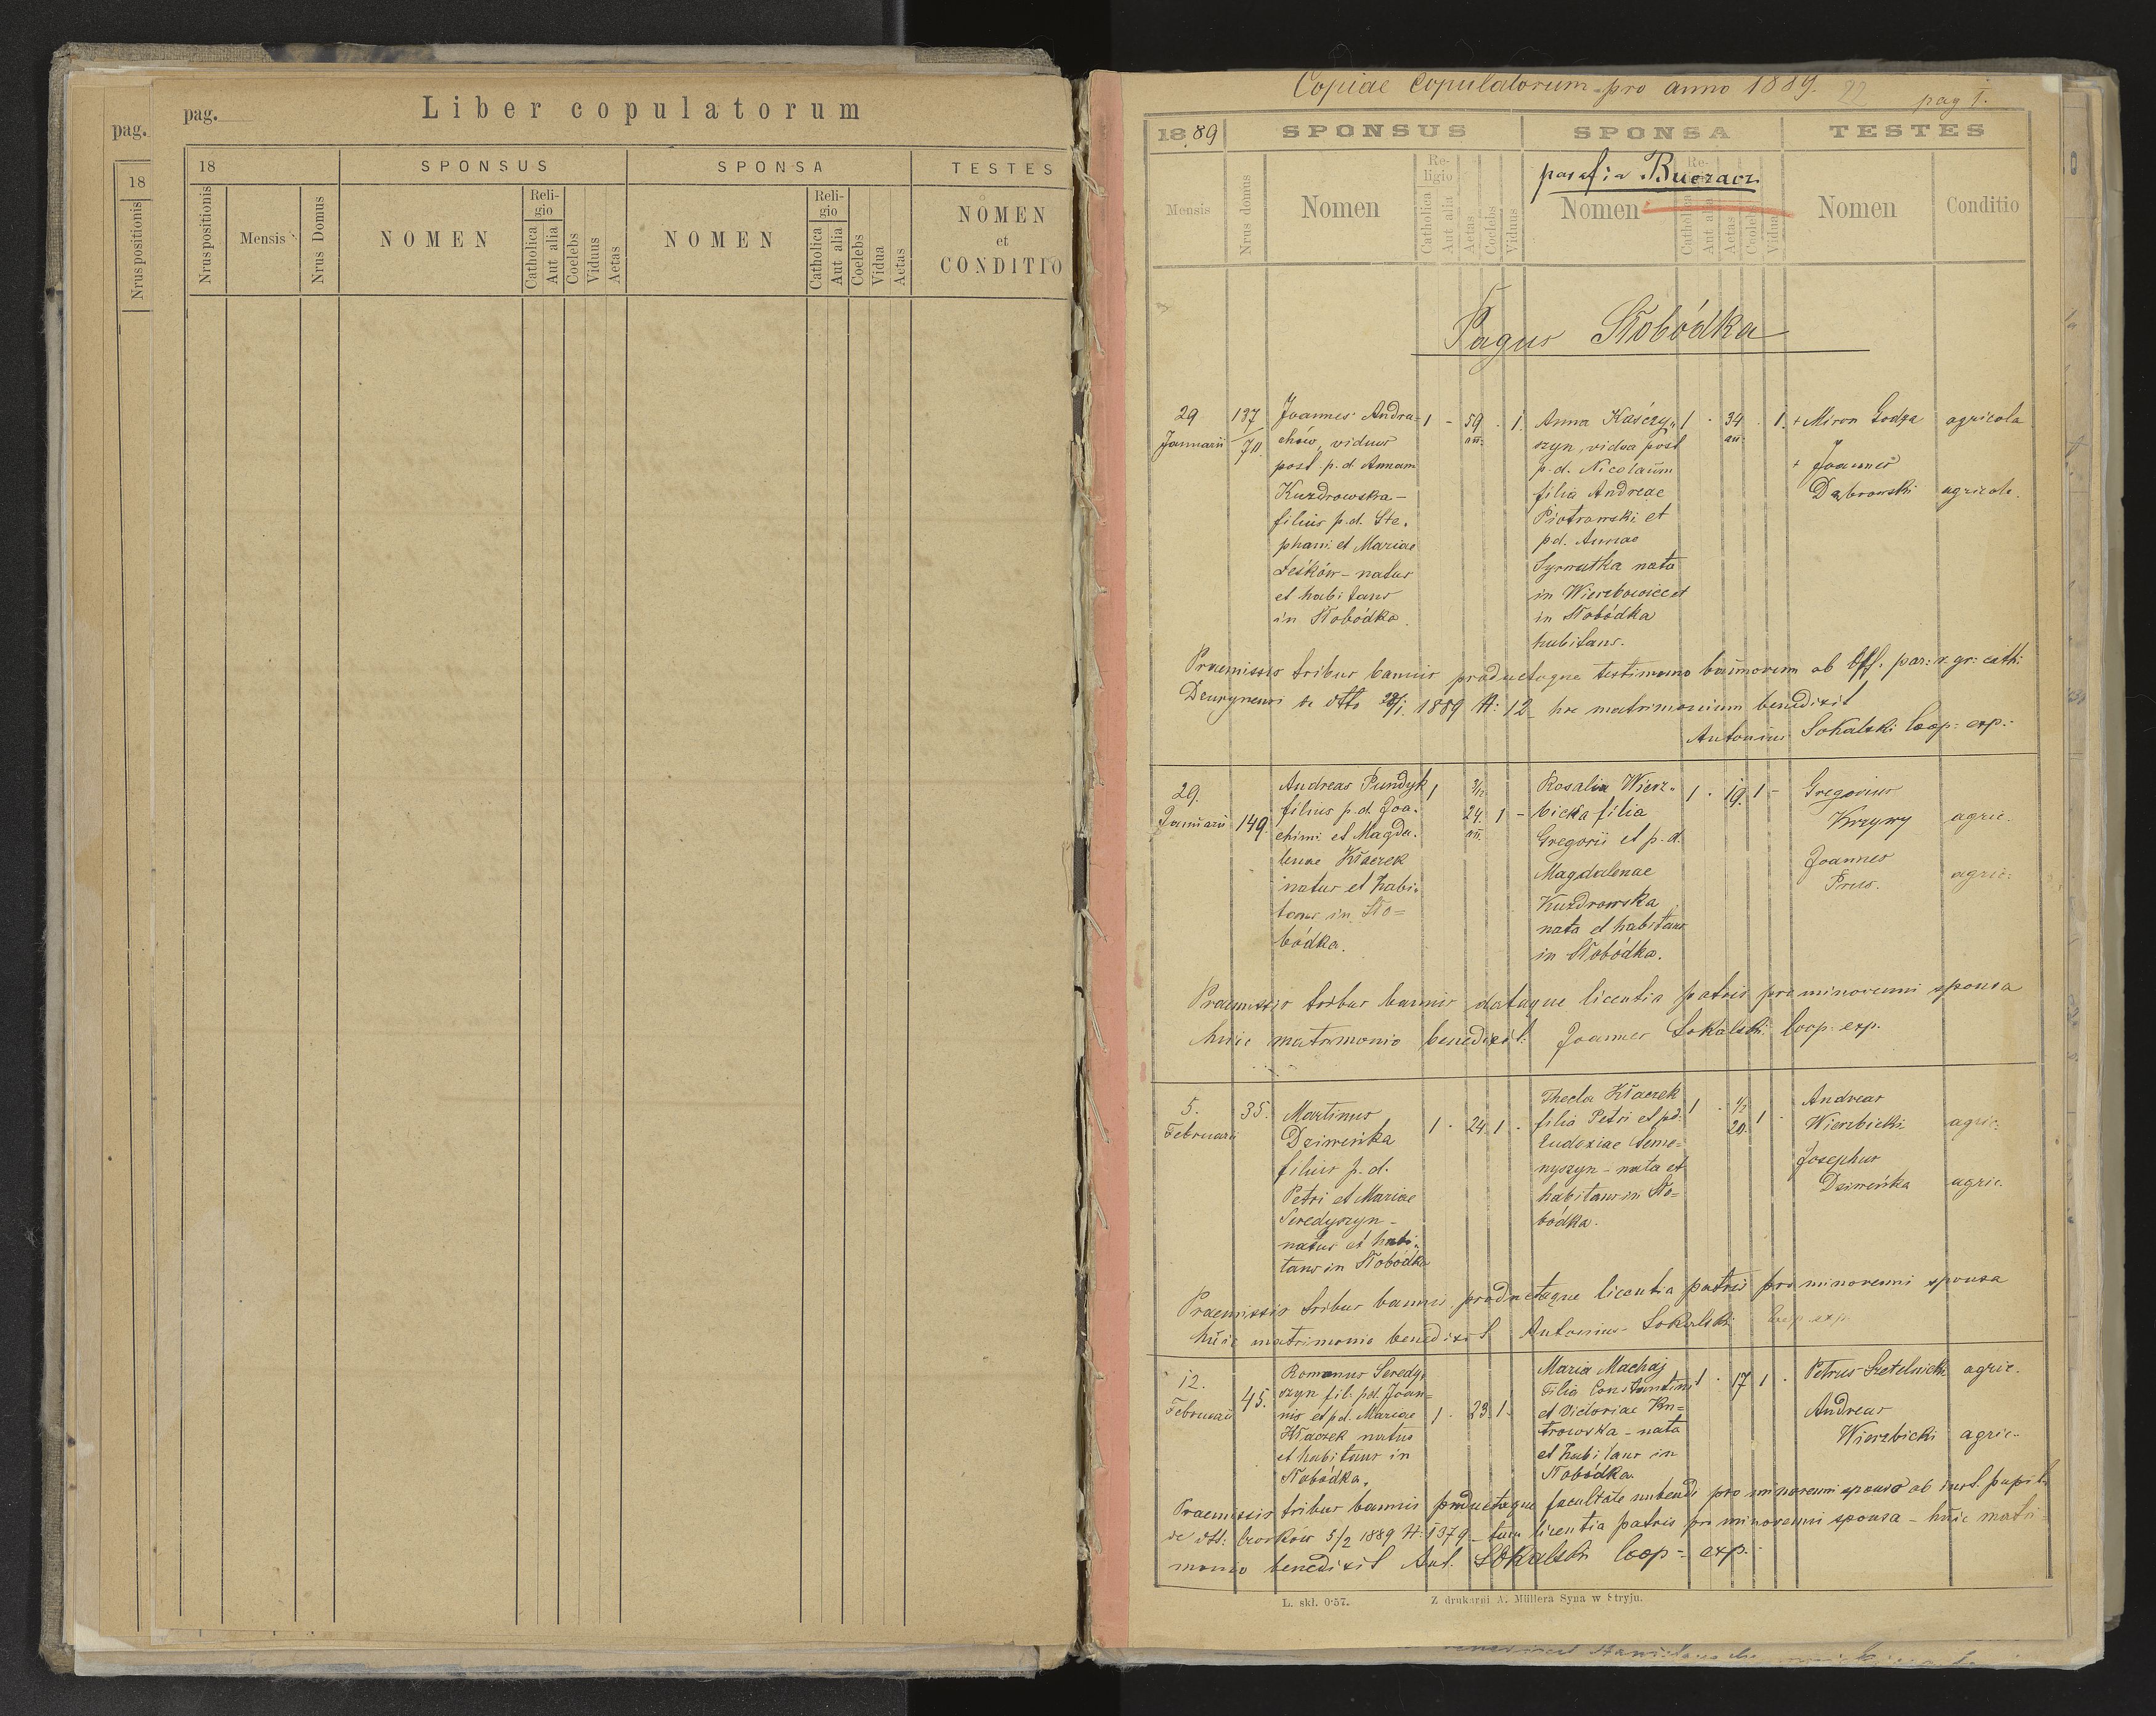 pag.
pag.
Liber copulatorum
18
18
SPONSUS
SPONSA
TESTES
Nrus positionis
Nrus positionis
Mensis
Nrus Domus
NOMEN
Religio
Catholica
Aut alia
Coelebs
Viduus
Aetas
NOMEN
Religio
Catholica
Aut alia
Coelebs
Vidua
Aetas
NOMEN
et
CONDITIO
Copiae Copulatorum pro anno 1889.
22
pag 1.
1889
SPONSUS
SPONSA
TESTES
parafia Buczacz
Mensis
Nrus domus
Nomen
Religio
Catholica
Aut alia
Aetas
Coelebs
Viduus
Nomen
Religio
Catholica
Aut alia
Aetas
Coelebs
Vidua
Nomen
Conditio
Pagus Słobódka
29
Januarii
137/70
Joannes Andra-
chów, viduus
post p.d. Annam
Kuzdrowska -
filius p.d. Ste.
phani et Mariae
Leśków - natus
et habitans
in Słobódka.
1 - 59 an. . 1.
Anna Kaśczy-
szyn, vidua post
p.d. Nicolaum
filia Andreae
Piotrowski et
p.d. Annae
Syrwatka nata
in Wierzbowiec et
in Słobódka
habitans.
1 . 34 an. . 1.
+ Miron Godza agricola
+ Joannes
Dąbrowski agricola.
Praemissis tribus bannis productoque testimonio bannorum ab Off. par: r. gr: cath:
de dtto 28/1. 1889 N: 12 hoc matrimonium benedixit
Antonius Sokalski Coop: exp:
29.
Januarii
149
Andreas Pundyk
filius p.d. Joa-
chimi et Magda-
lenae Kłaczek
natus et habi-
tans in Sło=
bódka.
1 3/12 24. an. 1 -
Rosalia Wierz-
bicka filia
Gregorii et p.d.
Magdalenae
Kuzdrowska
nata et habitans
in Słobódka.
1 . 19. 1 -
Gregorius
Krzywy agric.
Joannes
Prus. agric.
Praemissis tribus bannis dataque licentia patris pro minorenni sponsa
huic matrimonio benedixit. Joannes Sokalski Coop. exp.
5.
Februarii
35.
Martinus
Dziweńka
filius p.d.
Petri et Mariae
Seredyszyn -
natus et habi-
tans in Słobódka
1 . 24. 1 .
Thecla Kłaczek
filia Petri et p.d.
Eudoxiae Seme=
nyszyn - nata et
habitans in Sło=
bódka.
1 . 1/2 20. 1 .
Andreas
Wierzbicki agric.
Josephus
Dziweńka agric.
Praemissis tribus bannis productaque licentia patris pro minorenni sponsa
huic matrimonio benedixit Antonius Sokalski Coop. exp.
12.
Februarii
45.
Romanus Seredy-
szyn fil: p.d. Joan=
nis et p.d. Mariae
Kłaczek natus
et habitans in
Słobódka.
1 . 23. 1.
Maria Machaj
filia Constantini
et Victoriae Ku=
trowska - nata
et habitans in
Słobódka.
1 . 17 1 .
Petrus Szetelnicki agric.
Andreas
Wierzbicki agric.
Praemissis tribus bannis productaque facultate nubendi pro minorenni sponso ab inst. pupil.
de dtt: Czortków 5/2 1889 N: 1379 - tum licentia patris pro minorenni sponsa - huic matri-
monio benedixit Ant. Sokalski Coop: exp.
L. skł. 0·57.
Z drukarni A. Müllera Syna w Stryju.